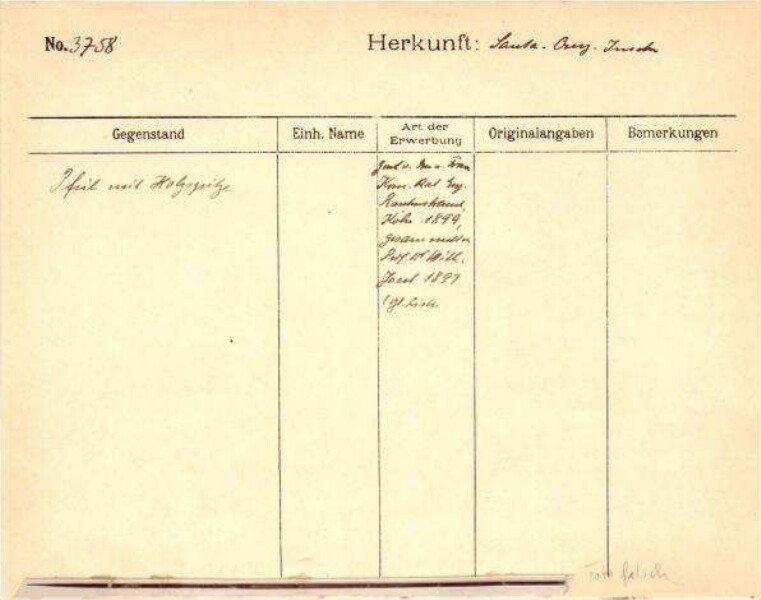 No. 3758
Herkunft: Santa-Cruz-Inseln
Gegenstand
Einh. Name
Art der
Erwerbung
Originalangaben
Bemerkungen
Pfeil mit Holzspitze
Gesch. v. Frau
Kom. Rat Eug.
Rautenstrauch,
Köln 1899,
gesammelt v.
Prof. Dr Wilh.
Joest 1897
falsch